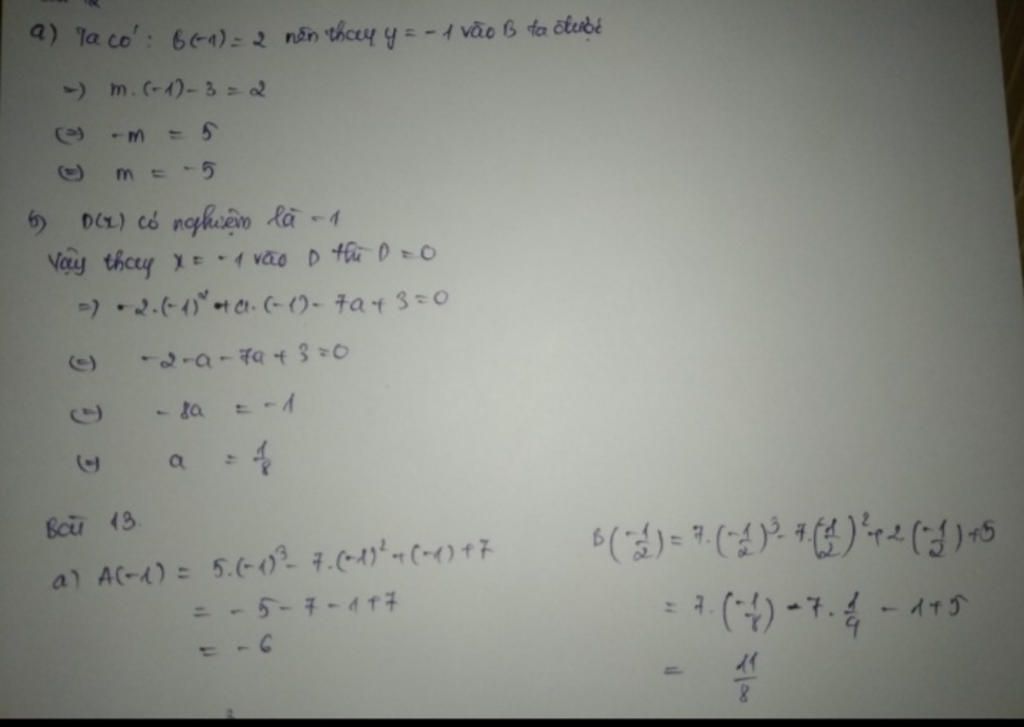 a) Ta có: B(-1) = 2 nên thay y = -1 vào B ta được
=) m.(-1) - 3 = 2
(=) -m = 5
(=) m = -5
b) D(x) có nghiệm là -1
Vậy thay x = -1 vào D thì D = 0
=) -2.(-1)² + a.(-1) - 7a + 3 = 0
(=) -2 - a - 7a + 3 = 0
(=) -8a = -1
(=) a = 1/8
Bài 13.
a) A(-1) = 5.(-1)³ - 7.(-1)² + (-1) + 7
= -5 - 7 - 1 + 7
= -6
B(-1/2) = 7.(-1/2)³ - 7.(-1/2)² + 2(-1/2) + 5
= 7.(-1/8) - 7.1/4 - 1 + 5
= 11/8